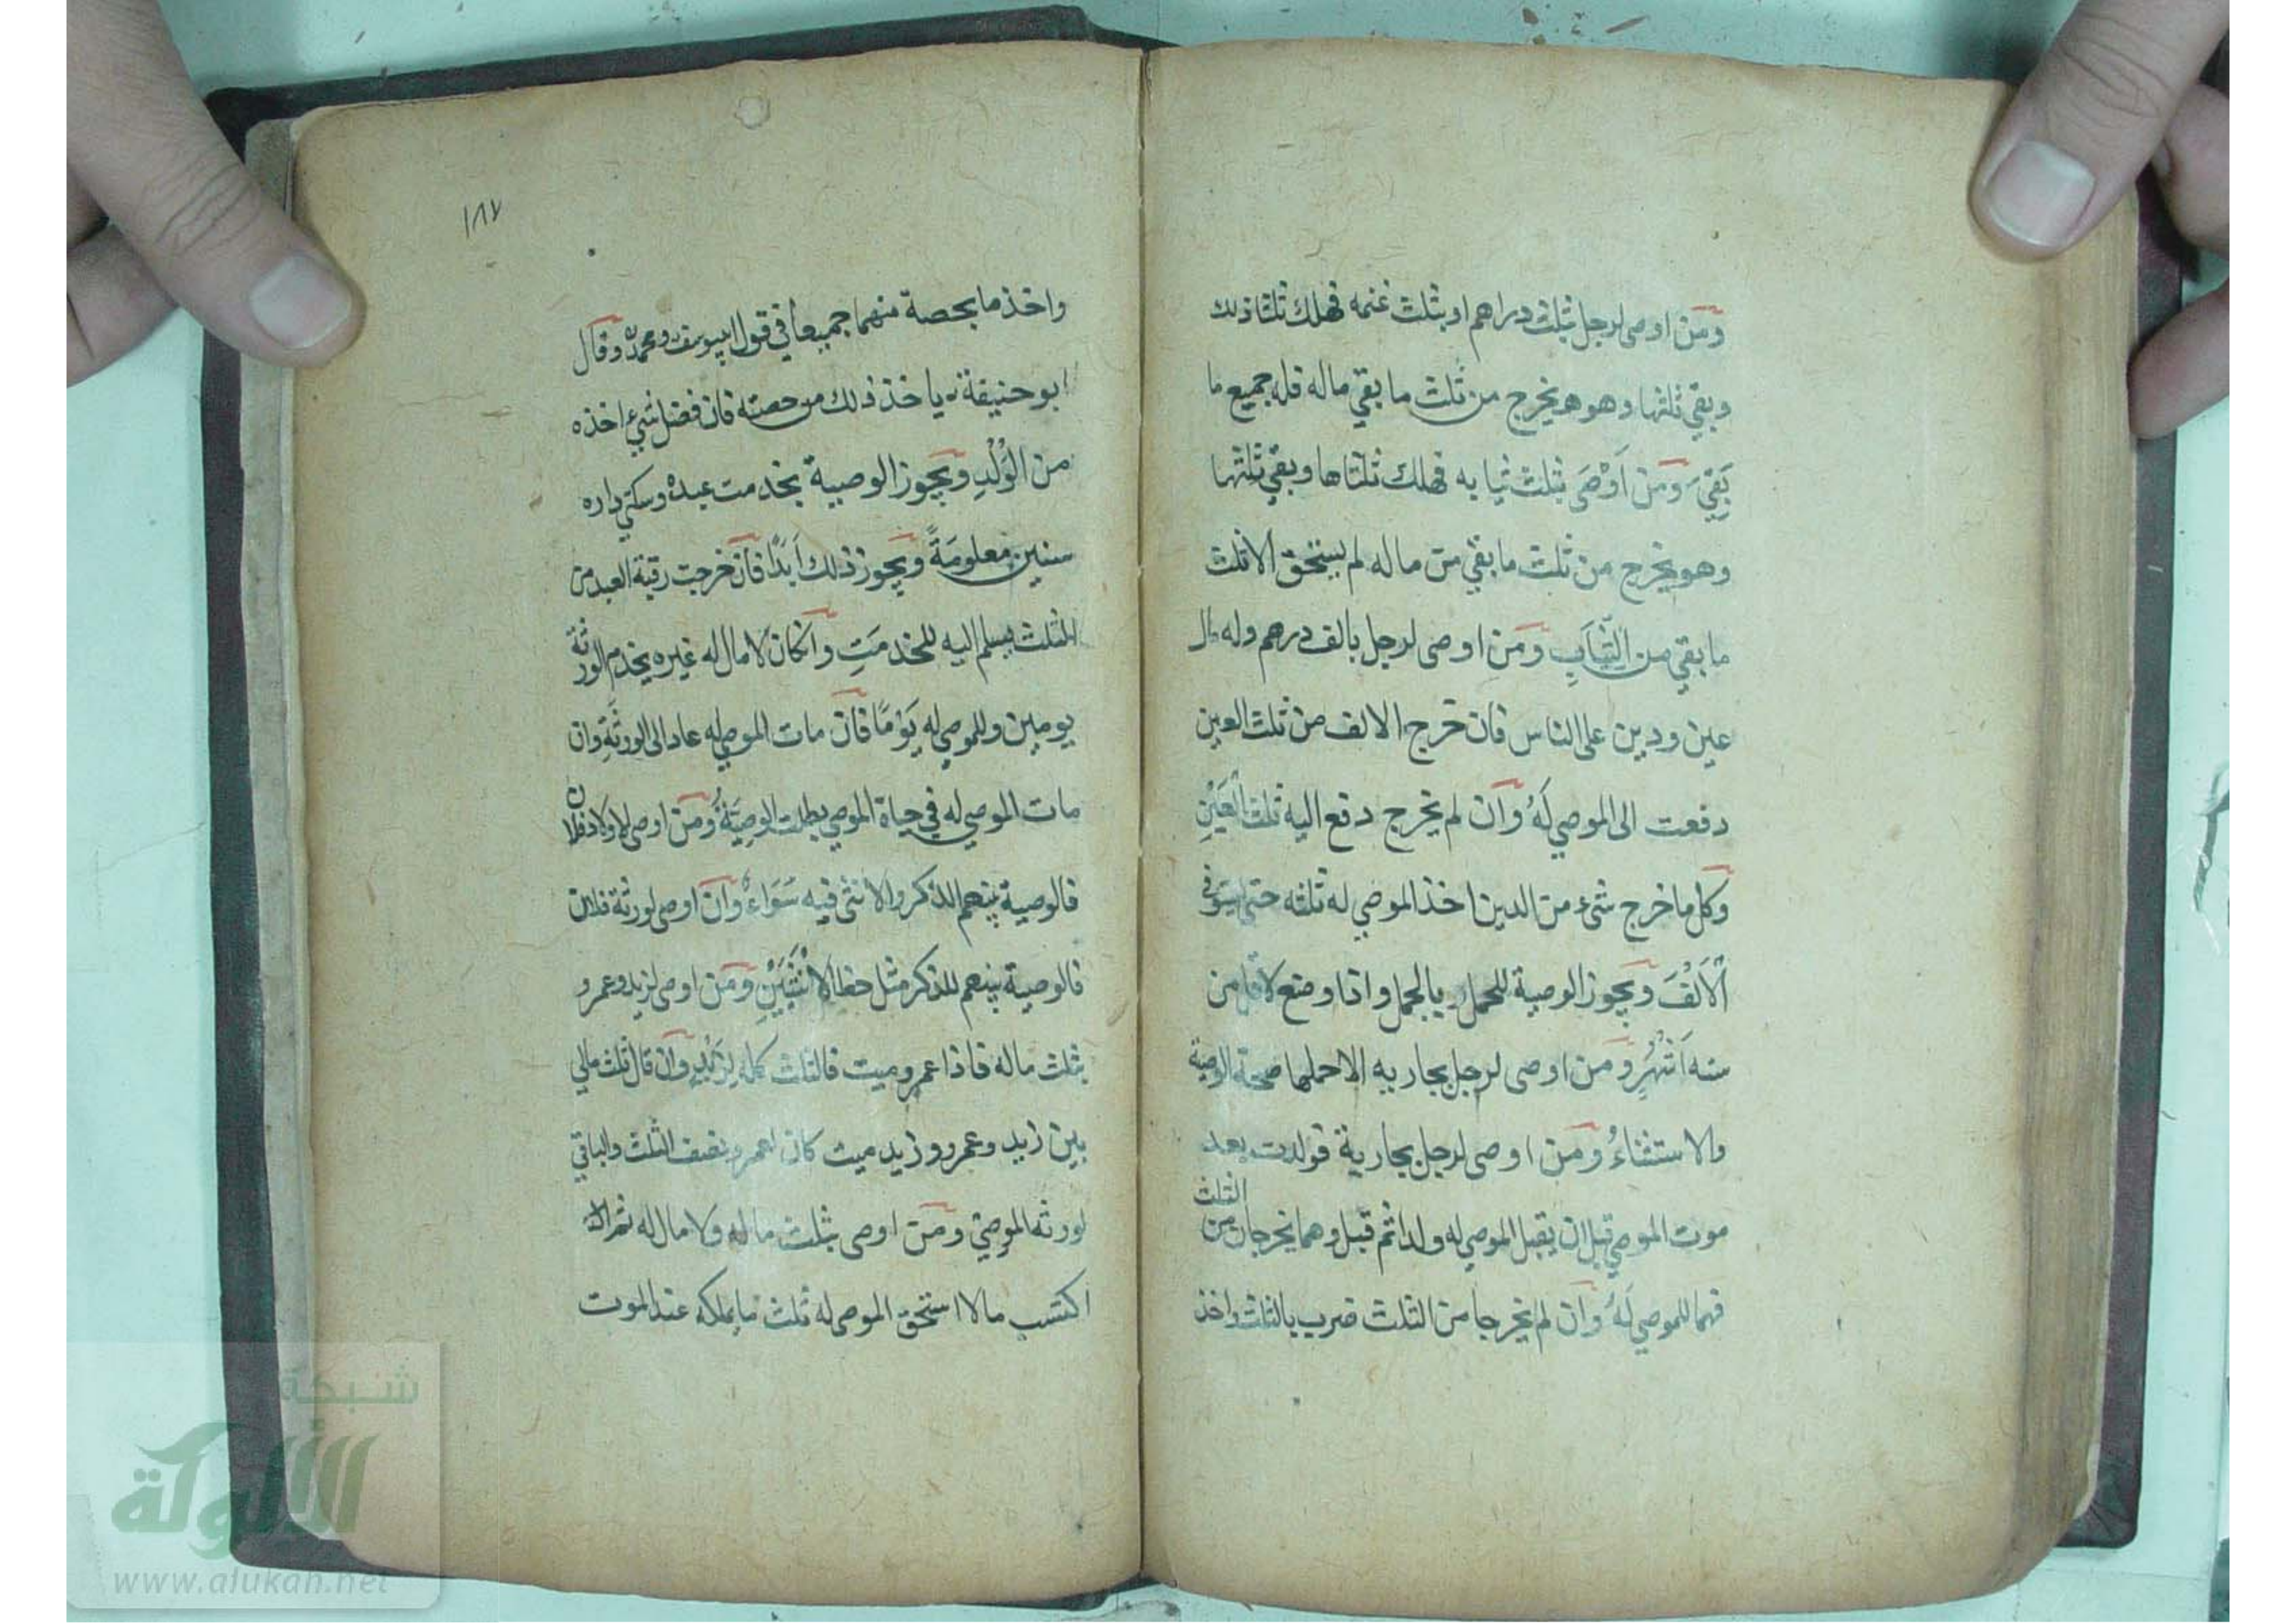 ومن اوصى لرجل بثلث دراهم او بثلث غنمه فهلك ثلثا ذلك
وبقي ثلثها وهو يخرج من ثلث ما بقي ماله فله جميع ما
بَقِيَ ومن اَوْصَى بثلث ثيابه فهلك ثلثاها وبقي ثلثها
وهو يخرج من ثلث ما بقي من ماله لم يستحق الا ثلث
ما بقي من الثِّيَابِ ومن اوصى لرجل بالف درهم وله مال
عين ودين على الناس فان خرج الالف من ثلث العين
دفعت الى الموصي لَهُ وان لم يخرج دفع اليه ثلث العَيْنِ
وكل ما خرج شىء من الدين اخذ الموصي له ثلثه حتى يستوفى
اْلاَلْفَ ويجوز الوصية للحمل وبالحمل واذا وضع لاقل من
سته اَشْهُرٍ ومن اوصى لرجل بجاريه الا حملها صحة الوصية
والاستثناءُ ومن اوصى لرجل بجارية فولدت بعد
موت الموصي قبل ان يقبل الموصي له ولدا ثم قبل وهما يخرجان من الثلث
فهما للموصي لَهُ وان لم يخرجا من الثلث ضرب بالثلث واخذ
١٨٧
واخذ ما بحصة منهما جميعاً في قول ابيوسف ومحمد وقال
ابو حنيفة ياخذ ذلك من حصته فان فضل شيء اخذه
من الوُلْدِ ويجوز الوصية بخدمت عبده وسكني داره
سنين معلومَةً ويجوز ذلك اَبَدًا فان خرجت رقبة العبد من
الثلث يسلم اليه للخدمَتِ وانكان لا مال له غيره يخدم الورثة
يومين وللموصي له يَوْمًا فان مات الموصي له عاد الى الورثَةِ وان
مات الموصي له في حياة الموصي بطلت الوصِيَةُ ومن اوصى لاولاد فلان
فالوصية بينهم الذكر والانثى فيه سَوَاءٌ وان اوصى لورثة فلان
فالوصية بينهم للذكر مثل حظ الاُنْثَيَيْنِ ومن اوصى لزيد وعمرو
بثلث ماله فاذا عمرو ميت فالثلث كله لزَيْدٍ وان قال ثلث مالي
بين زيد وعمرو وزيد ميت كان لعمرو نصف الثلث والباقي
لورثه الموصي ومن اوصى بثلث ماله ولا مال له ثم
اكتسب مالا استحق الموصى له ثلث ما يملكه عند الموت
شبكة
الألوكة
www.alukah.net